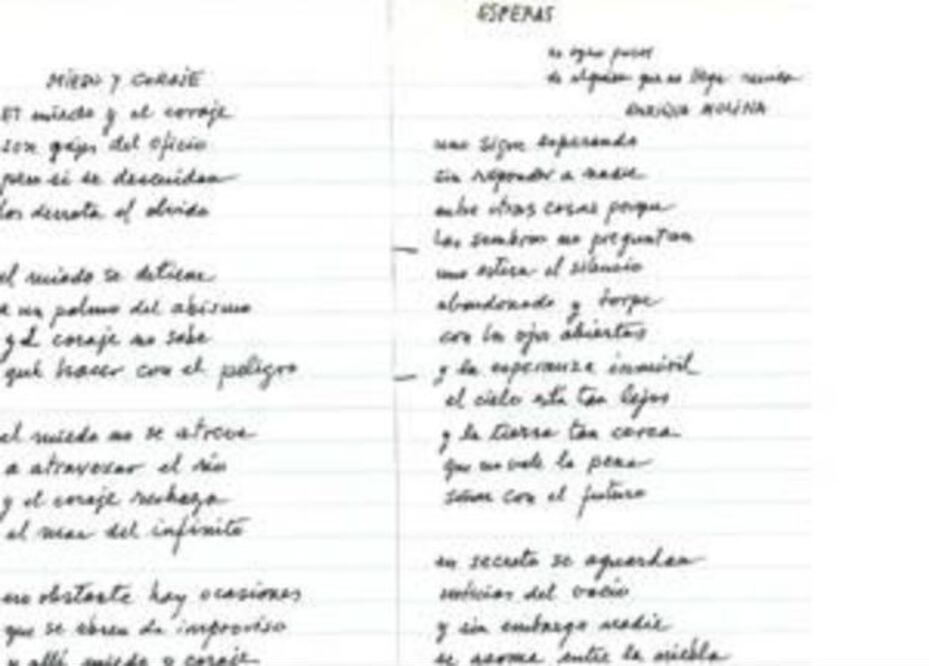 MIEDO Y CORAJE
El miedo y el coraje
son gajes del oficio
pero si se descuidan
los derrota el olvido
el miedo se detiene
a un palmo del abismo
y el coraje no sabe
qué hacer con el peligro
el miedo no se atreve
a atravesar el río
y el coraje rechaza
el mar del infinito
no obstante hay ocasiones
que se abren de improviso
y allí miedo y coraje
ESPERAS
de alguien que no llega nunca
ENRIQUE MOLINA
uno sigue esperando
sin responder a nadie
entre otras cosas porque
las sombras no preguntan
uno espera el silencio
abandonado y torpe
con los ojos abiertos
y la esperanza inmóvil
el cielo está tan lejos
y la tierra tan cerca
que no vale la pena
soñar con el futuro
en secreto se aguardan
noticias del vacío
y sin embargo nadie
se asoma entre la niebla